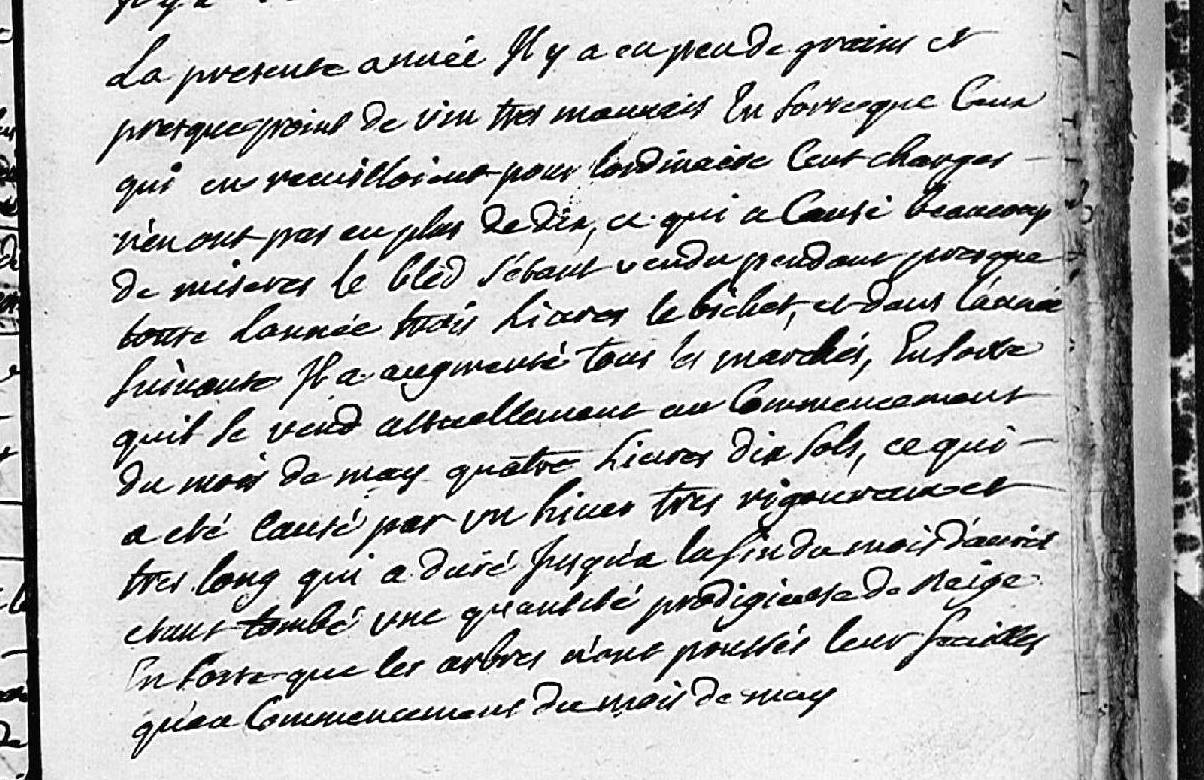 La presente année Il y a eu peu de grains et
presque point de vin tres mauvais En sorte que Ceux
qui en recuilloient pour lordinaire Cent charges
n'en ont pas eu plus de dix, ce qui a Causé beaucoup
de miseres le bled s'étant vendu pendant presque
toute Lannée trois Livres le bichet, et dans l'année
suivante Il a augmenté tous les marchés, En sorte
quil se vend actuellement au Commencement
du mois de may quatre Livres dix sols, ce qui
a eté Causé par un hiver tres rigoureux et
tres long qui a duré Jusqu'a la fin du mois d'avril
etant tombé une quantité prodigieuse de Neige
En sorte que les arbres n'ont poussés leur feuilles
qu'au Commencement du mois de may